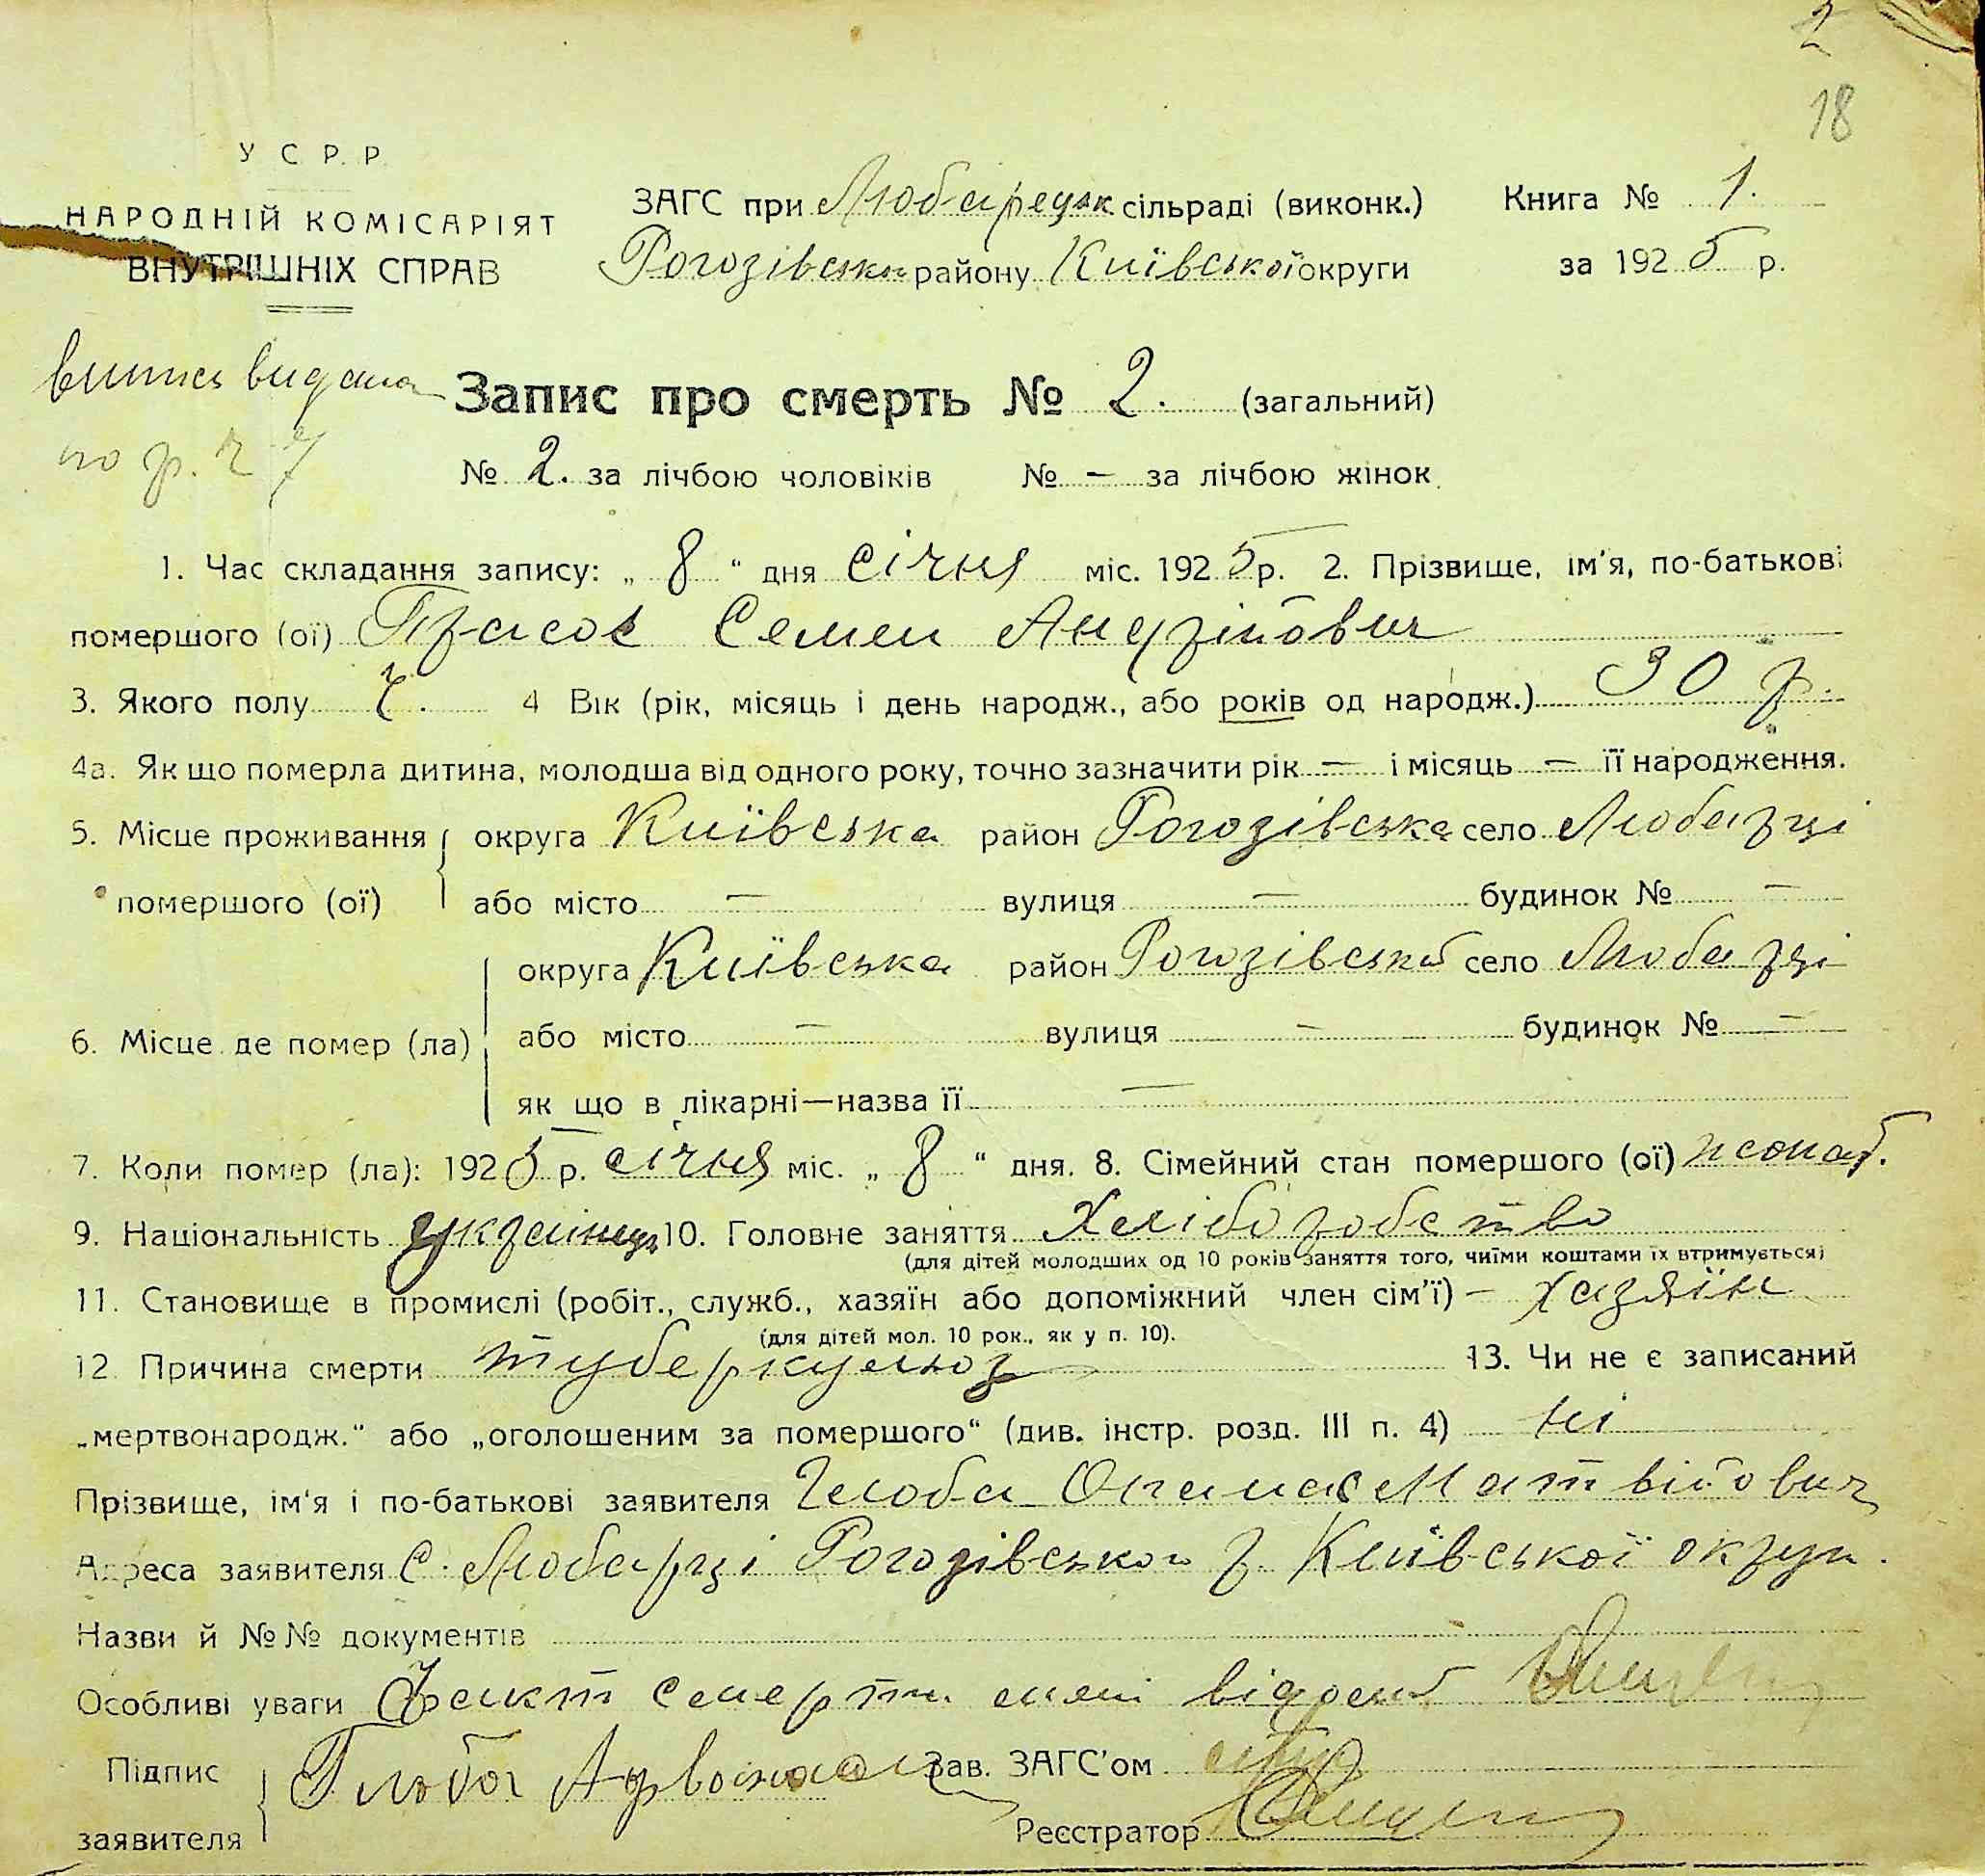 2
18
У С Р. Р.
НАРОДНІЙ КОМІСАРІЯТ
ВНУТРІШНІХ СПРАВ
ЗАГС при Любарецьк сільраді (виконк.) Книга № 1.
Рогозівськ району Київської округи за 1925 р.
випись видана
Запис про смерть № 2. (загальний)
№ 2. за лічбою чоловіків № — за лічбою жінок
1. Час складання запису: „ 8 “ дня січня міс. 1925 р. 2. Прізвище, ім'я, по-батькові
помершого (ої) Прасол Семен Андрійович
3. Якого полу ч. 4 Вік (рік, місяць і день народж., або років од народж.) 30 р.
4а. Як що померла дитина, молодша від одного року, точно зазначити рік — і місяць — її народження.
5. Місце проживання округа Київська район Рогозівська село Любарці
помершого (ої) або місто — вулиця — будинок № —
округа Київська район Рогозівськ село Любарці
6. Місце де помер (ла) або місто — вулиця — будинок № —
як що в лікарні—назва її —
7. Коли помер (ла): 1925 р. січня міс. „ 8 “ дня. 8. Сімейний стан помершого (ої) жонат.
9. Національність українець 10. Головне заняття Хліборобство
(для дітей молодших од 10 років заняття того, чиїми коштами їх втримується)
11. Становище в промислі (робіт., служб., хазяїн або допоміжний член сім'ї) – хазяїн
(для дітей мол. 10 рок., як у п. 10).
12. Причина смерти туберкульоз 13. Чи не є записаний
„мертвонародж.“ або „оголошеним за помершого“ (див. інстр. розд. III п. 4) ні
Прізвище, ім'я і по-батькові заявителя Глоба Опанас Матвійович
Адреса заявителя С. Любарці Рогозівсько р. Київської округи.
Назви й №№ документів
Особливі уваги Факт смерти мені відомий
Підпис Глоба Зав. ЗАГС'ом
заявителя Реєстратор